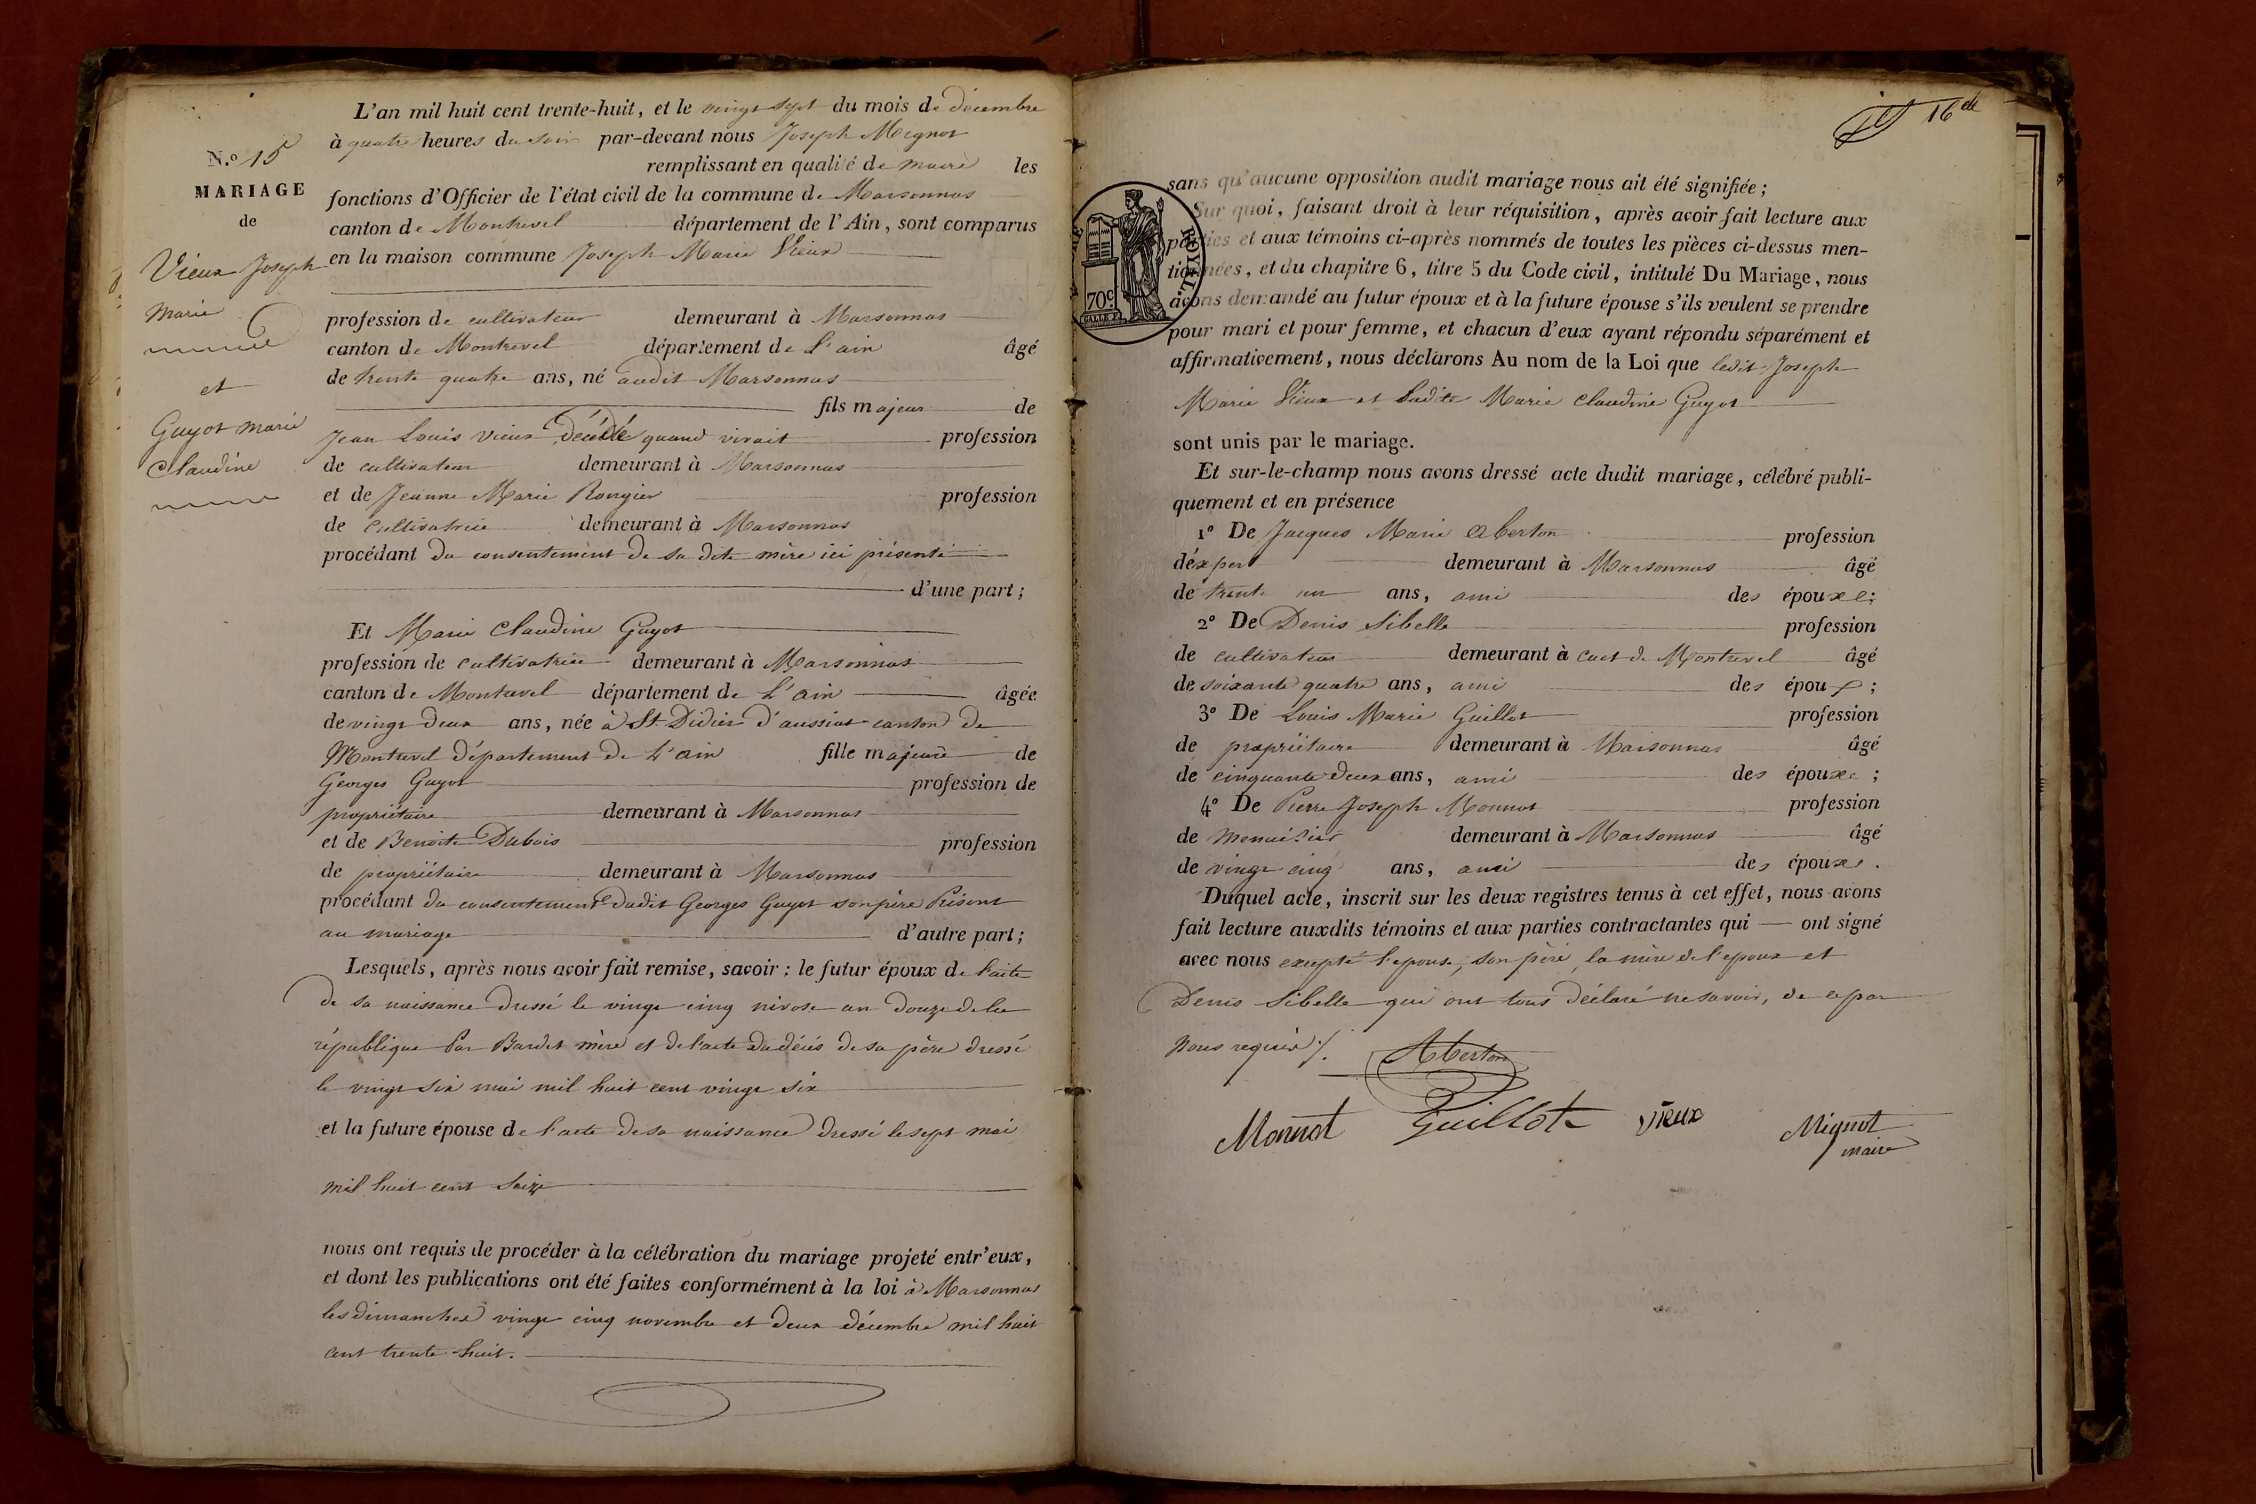 N.o 15
MARIAGE
de
Vieux Joseph
marie
et
Guyot marie
Claudine
L'an mil huit cent trente-huit, et le vingt sept du mois de décembre
à quatre heures du soir par-devant nous Joseph Mignot
remplissant en qualité de maire les
fonctions d'Officier de l'état civil de la commune de Marsonnas
canton de Montrevel département de l'Ain, sont comparus
en la maison commune Joseph Marie Vieux
profession de cultivateur demeurant à Marsonnas
canton de Montrevel département de L'ain âgé
de trente quatre ans, né audit Marsonnas
fils majeur de
Jean Louis vieux décédé quand vivait profession
de cultivateur demeurant à Marsonnas
et de Jeanne Marie Rongier profession
de cultivatrice demeurant à Marsonnas
procédant du consentement de sa dite mère ici présente
d'une part;
Et Marie Claudine Guyot
profession de cultivatrice demeurant à Marsonnas
canton de Montrevel département de L'ain âgée
de vingt deux ans, née à St Didier d'aussiat canton de
Montrevel département de L'ain fille majeure de
Georges Guyot profession de
propriétaire demeurant à Marsonnas
et de Benoite Dubois profession
de propriétaire demeurant à Marsonnas
procédant du consentement dudit Georges Guyot son père Présent
au mariage d'autre part;
Lesquels, après nous avoir fait remise, savoir: le futur époux de l'acte
de sa naissance dressé le vingt cinq nivose an douze de la
république Par Bardet mère et de l'acte du décés de son père dressé
le vingt six mai mil huit cent vingt six
et la future épouse de l'acte de sa naissance dressé le sept mai
mil huit cent seize
nous ont requis de procéder à la célébration du mariage projeté entr'eux,
et dont les publications ont été faites conformément à la loi à Marsonnas
les dimanches vingt cinq novembre et deux décembre mil huit
cent trente huit.
16
70c
ROYAL.
sans qu'aucune opposition audit mariage nous ait été signifiée;
Sur quoi, faisant droit à leur réquisition, après avoir fait lecture aux
parties et aux témoins ci-après nommés de toutes les pièces ci-dessus men-
tionnées, et du chapitre 6, titre 5 du Code civil, intitulé Du Mariage, nous
avons demandé au futur époux et à la future épouse s'ils veulent se prendre
pour mari et pour femme, et chacun d'eux ayant répondu séparément et
affirmativement, nous déclarons Au nom de la Loi que ledit Joseph
Marie Vieux et Ladite Marie Claudine Guyot
sont unis par le mariage.
Et sur-le-champ nous avons dressé acte dudit mariage, célébré publi-
quement et en présence
1o De Jacques Marie Aberton profession
d'éxpert demeurant à Marsonnas âgé
de trente un ans, ami des époux;
2o De Denis Sibelle profession
de cultivateur demeurant à cuet de Montrevel âgé
de soixante quatre ans, ami des époux;
3o De Louis Marie Guillot profession
de propriétaire demeurant à Marsonnas âgé
de cinquante deux ans, ami des époux;
4o De Pierre Joseph Monnot profession
de menuisier demeurant à Marsonnas âgé
de vingt cinq ans, ami des époux.
Duquel acte, inscrit sur les deux registres tenus à cet effet, nous avons
fait lecture auxdits témoins et aux parties contractantes qui ont signé
avec nous excepté l'épouse, son père, la mère de l'époux et
Denis Sibelle qui ont tous déclaré ne savoir, de ce par
nous requis
Aberton
Monnot Guillot vieux Mignot
maire